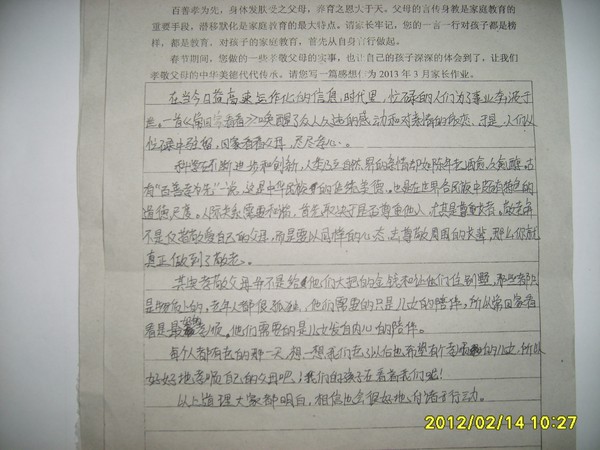 百善孝为先,身体发肤受之父母,养育之恩大于天。父母的言传身教是家庭教育的
重要手段,潜移默化是家庭教育的最大特点。请家长牢记,您的一言一行对孩子都是榜
样,都是教育,对孩子的家庭教育,首先从自身言行做起。
春节期间,您做的一些孝敬父母的实事,也让自己的孩子深深的体会到了,让我们
孝敬父母的中华美德代代传承。请您写一篇感想作为2013年3月家长作业。
在当今日益高速运作化的信息时代里,忙碌的人们为了事业奔波于
世。一首《常回家看看》唤醒了众人久违的感动和对亲情的 于是,人们从
忙碌中 回家看看父母,尽尽孝心。
科学在不断进步和创新,人类 自然界的亲情却如陈年老酒 古
有"百善孝为先"一说,这是中华民族的传统美德。也是在世界各民族中 有特色的
道德尺度。人际关系需要和谐,首先取决于是否尊重他人,尤其是尊重长者。敬老并
不是仅孝敬爱自己的父母,而是要以同样的心态,去尊敬周围的长辈,那么你就
真正做到了敬老。
其实孝敬父母并不是给他们大把的金钱和让他们住别墅,那些都只
是物质上的,老年人都很孤独,他们需要的只是儿女的陪伴,所以常回家看
看是最 孝顺。他们需要的是儿女发自内心的陪伴。
每个人都有老的那一天,想一想我们老了以后也希望有个孝顺的儿女,所以
好好地孝顺自己的父母吧!我们的孩子在看着我们呢!
以上道理大家都明白,相信也会很好地付诸于行动。
2012/02/14 10:27